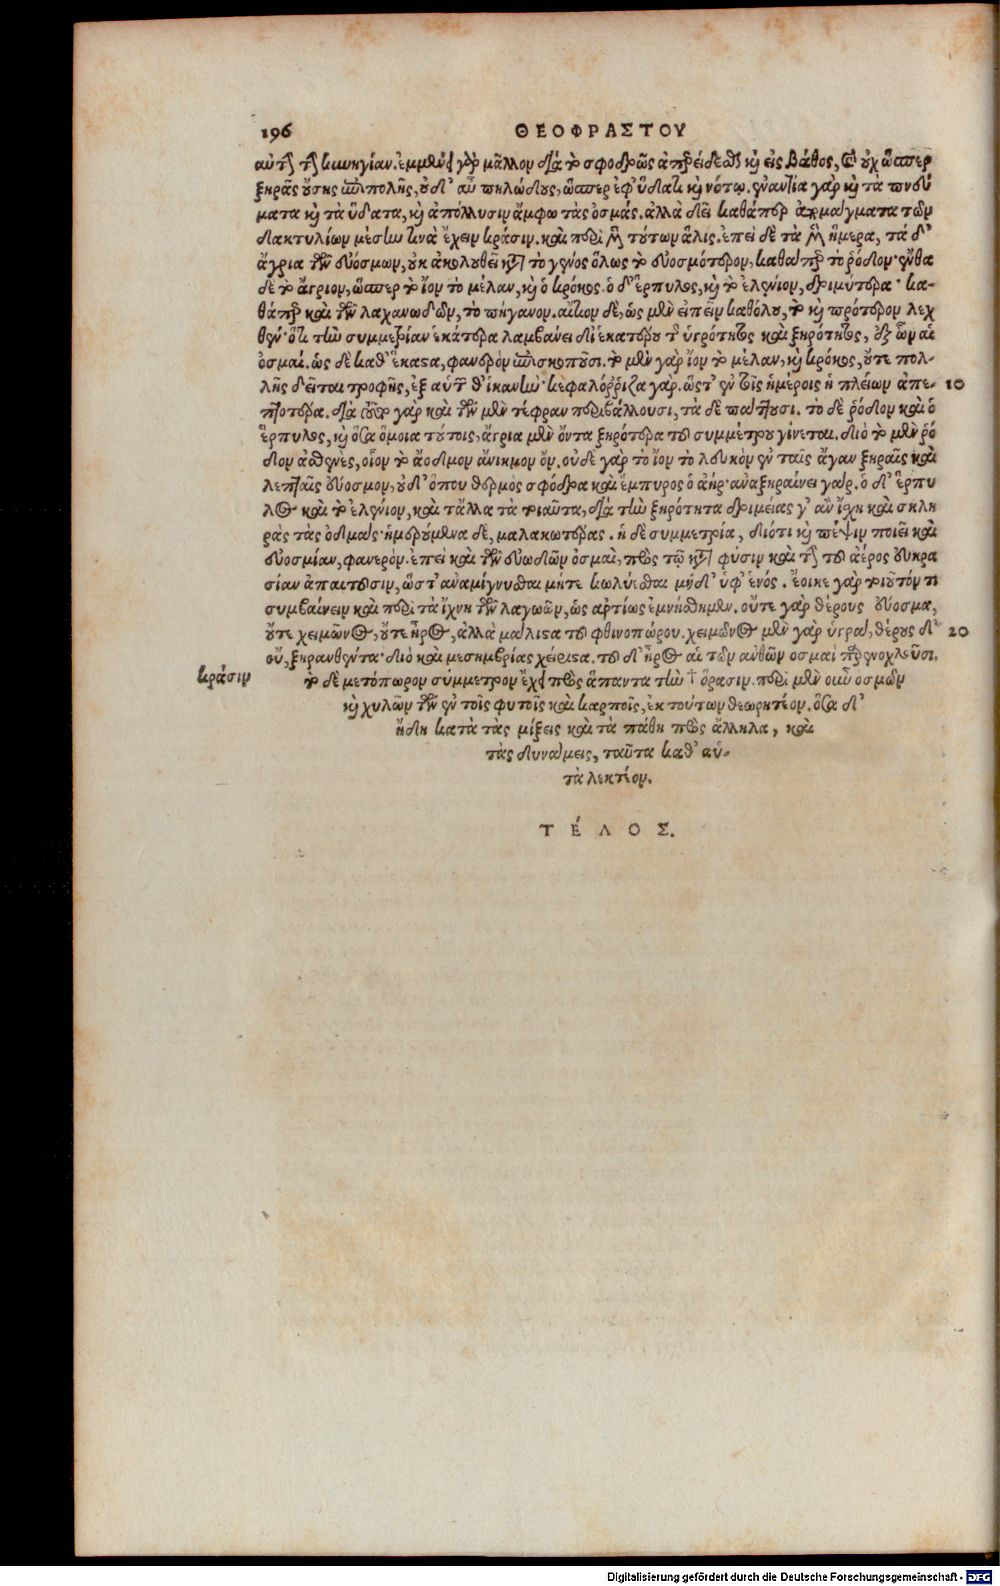 196 ΘΕΟΦΡΑΣΤΟΥ
αὐτὴν τὴν κυνηγίαν. ἐμμένει γὰρ μᾶλλον διὰ τὸ σφοδρῶς ἀπερείδεσθαι καὶ εἰς βάθος, καὶ οὐχ ὥσπερ
ξηρᾶς οὔσης ἐπιπολῆς, οὐδ' αὖ πηλώδους, ὥσπερ ἐφ' ὕδατι καὶ νότῳ. ἐναντία γὰρ καὶ τὰ πνεύ
ματα καὶ τὰ ὕδατα, καὶ ἀπόλλυσιν ἄμφω τὰς ὀσμάς. ἀλλὰ δεῖ καθάπερ ἀρμαγματα τῶν
δακτυλίων μέσην τινὰ ἔχειν κράσιν. καὶ περὶ μὲν τούτων ἅλις. ἐπεὶ δὲ τὰ μὲν ἥμερα, τά δ'
ἄγρια τῶν εὐόσμων, οὐκ ἀκολουθεῖ κατὰ τὸ γένος ὅλως τὸ εὐοσμότερον, καθάπερ τὸ ῥόδον· ἔνθα
δὲ τὸ ἄγριον, ὥσπερ τὸ ἴον τὸ μέλαν, καὶ ὁ κρόκος. ὁ δ' ἕρπυλος, καὶ τὸ ἑλένιον, δριμύτερα· κα-
θάπερ καὶ τῶν λαχανωδῶν, τὸ πήγανον. αἴτιον δὲ, ὡς μὲν εἰπεῖν καθόλου, τὸ καὶ πρότερον λεχ
θέν· ὅτι τὴν συμμετρίαν ἑκάτερα λαμβάνει δι' ἑκατέρου τῆς ὑγρότητος καὶ ξηρότητος, ἐξ ὧν αἱ
ὀσμαί. ὡς δὲ καθ' ἕκαστα, φανερὸν ἐπισκοποῦσι. τὸ μὲν γὰρ ἴον τὸ μέλαν, καὶ κρόκος, οὔτε πολ-
λῆς δεῖται τροφῆς, ἐξ αὑτῆς θ' ἱκανὴν· κεφαλόῤῥιζα γὰρ. ὥστ' ἐν τοῖς ἡμέροις ἡ πλείων ἀπε- 10
πτοτέρα. διὰ τοῦτο γὰρ καὶ τῶν μὲν τέφραν περιβάλλουσι, τὰ δὲ πατοῦσι. τὸ δὲ ῥόδον καὶ ὁ
ἕρπυλος, καὶ ὅσα ὅμοια τούτοις, ἄγρια μὲν ὄντα ξηρότερα τοῦ συμμέτρου γίνεται. διὸ τὸ μὲν ῥό
δον ἀσθενὲς, οἷον τὸ ἄοδμον ἄνικμον ὄν. οὐδὲ γὰρ τὸ ἴον τὸ λευκὸν ἐν ταῖς ἄγαν ξηραῖς καὶ
λεπταῖς εὔοσμον, οὐδ' ὅπου θερμὸς σφόδρα καὶ ἔμπυρος ὁ ἀήρ· ἀναξηραίνει γάρ. ὁ δ' ἕρπυ
λος καὶ τὸ ἑλένιον, καὶ τἄλλα τὰ τοιαῦτα, διὰ τὴν ξηρότητα δριμείας γ' ἂν ἴσχῃ καὶ σκλη
ρὰς τὰς ὀδμάς· ἡμερούμενα δὲ, μαλακωτέρας. ἡ δὲ συμμετρία, διότι καὶ πέψιν ποιεῖ καὶ
εὐοσμίαν, φανερόν. ἐπεὶ καὶ τῶν εὐωδῶν ὀσμαὶ, πρὸς τῷ κατὰ φύσιν καὶ τὴν τοῦ ἀέρος εὐκρα
σίαν ἀπαιτοῦσιν, ὥστ' ἀναμίγνυσθαι μήτε κωλύεσθαι μηδ' ὑφ' ἑνός. ἔοικε γὰρ τοιοῦτόν τι
συμβαίνειν καὶ περὶ τὰ ἴχνη τῶν λαγωῶν, ὡς ἀρτίως ἐμνήσθημεν. οὔτε γὰρ θέρους εὔοσμα,
οὔτε χειμῶνος, οὔτε ἦρος, ἀλλὰ μάλιστα τοῦ φθινοπώρου. χειμῶνος μὲν γὰρ ὑγρὰ, θέρους δ' 20
οὖ, ξηρανθέντα· διὸ καὶ μεσημβρίας χείριστα. τοῦ δ' ἦρος αἱ τῶν ἀνθῶν ὀσμαὶ παρενοχλοῦσι.
κράσιν τὸ δὲ μετόπωρον σύμμετρον ἔχει πρὸς ἅπαντα τὴν † ὅρασιν. περὶ μὲν οὖν ὀσμῶν
καὶ χυλῶν τῶν ἐν τοῖς φυτοῖς καὶ καρποῖς, ἐκ τούτων θεωρητέον. ὅσα δ'
ἤδη κατὰ τὰς μίξεις καὶ τὰ πάθη πρὸς ἄλληλα, καὶ
τὰς δυνάμεις, ταῦτα καθ' αὑ-
τὰ λεκτέον.
ΤΈΛΟΣ.
Digitalisierung gefördert durch die Deutsche Forschungsgemeinschaft - DFG